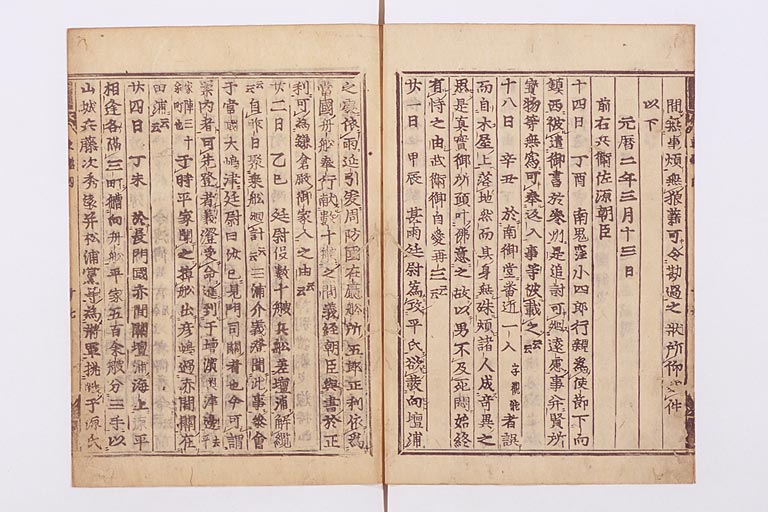 間無事煩無狼藉可令勘過之狀所仰如件
以下
元曆二年三月十三日
前右兵衛佐源朝臣
十四日 丁酉 南鬼窪小四郎行親爲使節下向
鎮西被遣御書於參州是追討可廻遠慮事并賢所
寶物等無爲可奉返入事等被載之云云
十八日 辛丑 於南御堂番近一人 字觀能 者誤
而自木屋上落地然而其身無殊煩諸人成奇異之
思是真實御所頭叶佛意之故以男不及死悶始終
有恃之由武衛御自愛再三云云
廿一日 甲辰 甚雨廷尉爲攻平氏欲發向壇浦
之處依雨延引爰周防國在廳舩所五郎正利依爲
當國舟舩奉行献數十艘之間義經朝臣與書於正
利可爲鎌倉殿御家人之由云云
廿二日 乙巳 廷尉促數十艘兵舩差壇浦解纜
云云自昨日聚乗舩廻計云云三浦介義澄聞此事參會
于當國大嶋津廷尉曰汝已見門司關者也今可謂
案内者可先登者義澄受命進到于壇濵奥津邊 去
田浦云云
于時平家聞之棹舩出彦嶋過赤間關在
廿四日 丁未 於長門國赤間關壇浦海上源平
相逢各隔三町艚向舟舩平家五百余艘分三手以
山峨兵藤次秀遠并松浦黨等爲將軍挑戦于源氏